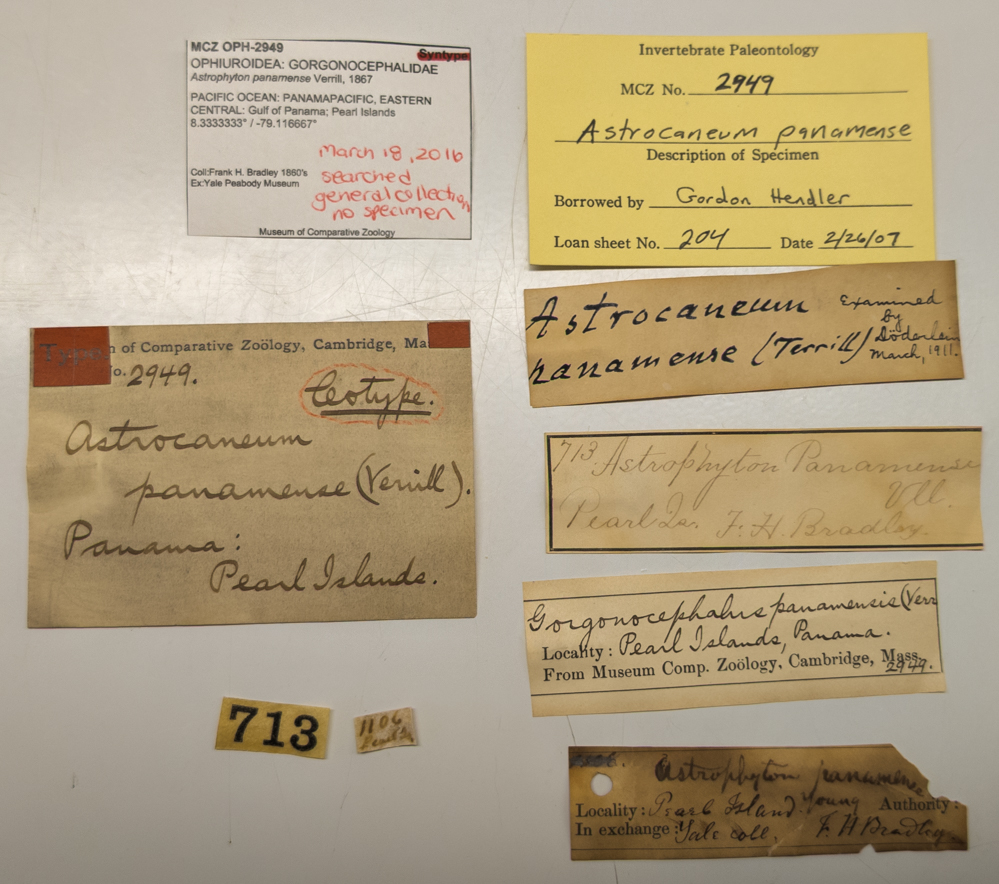 MCZ OPH-2949
Syntype
OPHIUROIDEA: GORGONOCEPHALIDAE
Astrophyton panamense Verrill, 1867
PACIFIC OCEAN: PANAMAPACIFIC, EASTERN
CENTRAL: Gulf of Panama; Pearl Islands
8.3333333° / -79.116667°
March 18, 2016
searched
general collection
no specimen
Coll:Frank H. Bradley 1860's
Ex:Yale Peabody Museum
Museum of Comparative Zoology
Invertebrate Paleontology
MCZ No. 2949
Astrocaneum panamense
Description of Specimen
Borrowed by Gordon Hendler
Loan sheet No. 204 Date 2/26/07
Astrocaneum
panamense (Verrill)
Examined
by
Döderlein
March, 1911.
n of Comparative Zoölogy, Cambridge, Ma
o. 2949.
Cotype.
Astrocaneum
panamense (Verrill).
Panama:
Pearl Islands.
713 Astrophyton Panamense
Vll.
Pearl Is. F. H. Bradley.
Gorgonocephalus panamensis (Verr
Locality: Pearl Islands, Panama.
From Museum Comp. Zoölogy, Cambridge, Mass.
2949.
713
1106
Astrophyton panamense
Locality: Pearl Island. Young Authority:
In exchange: Yale coll. F. H Bradley